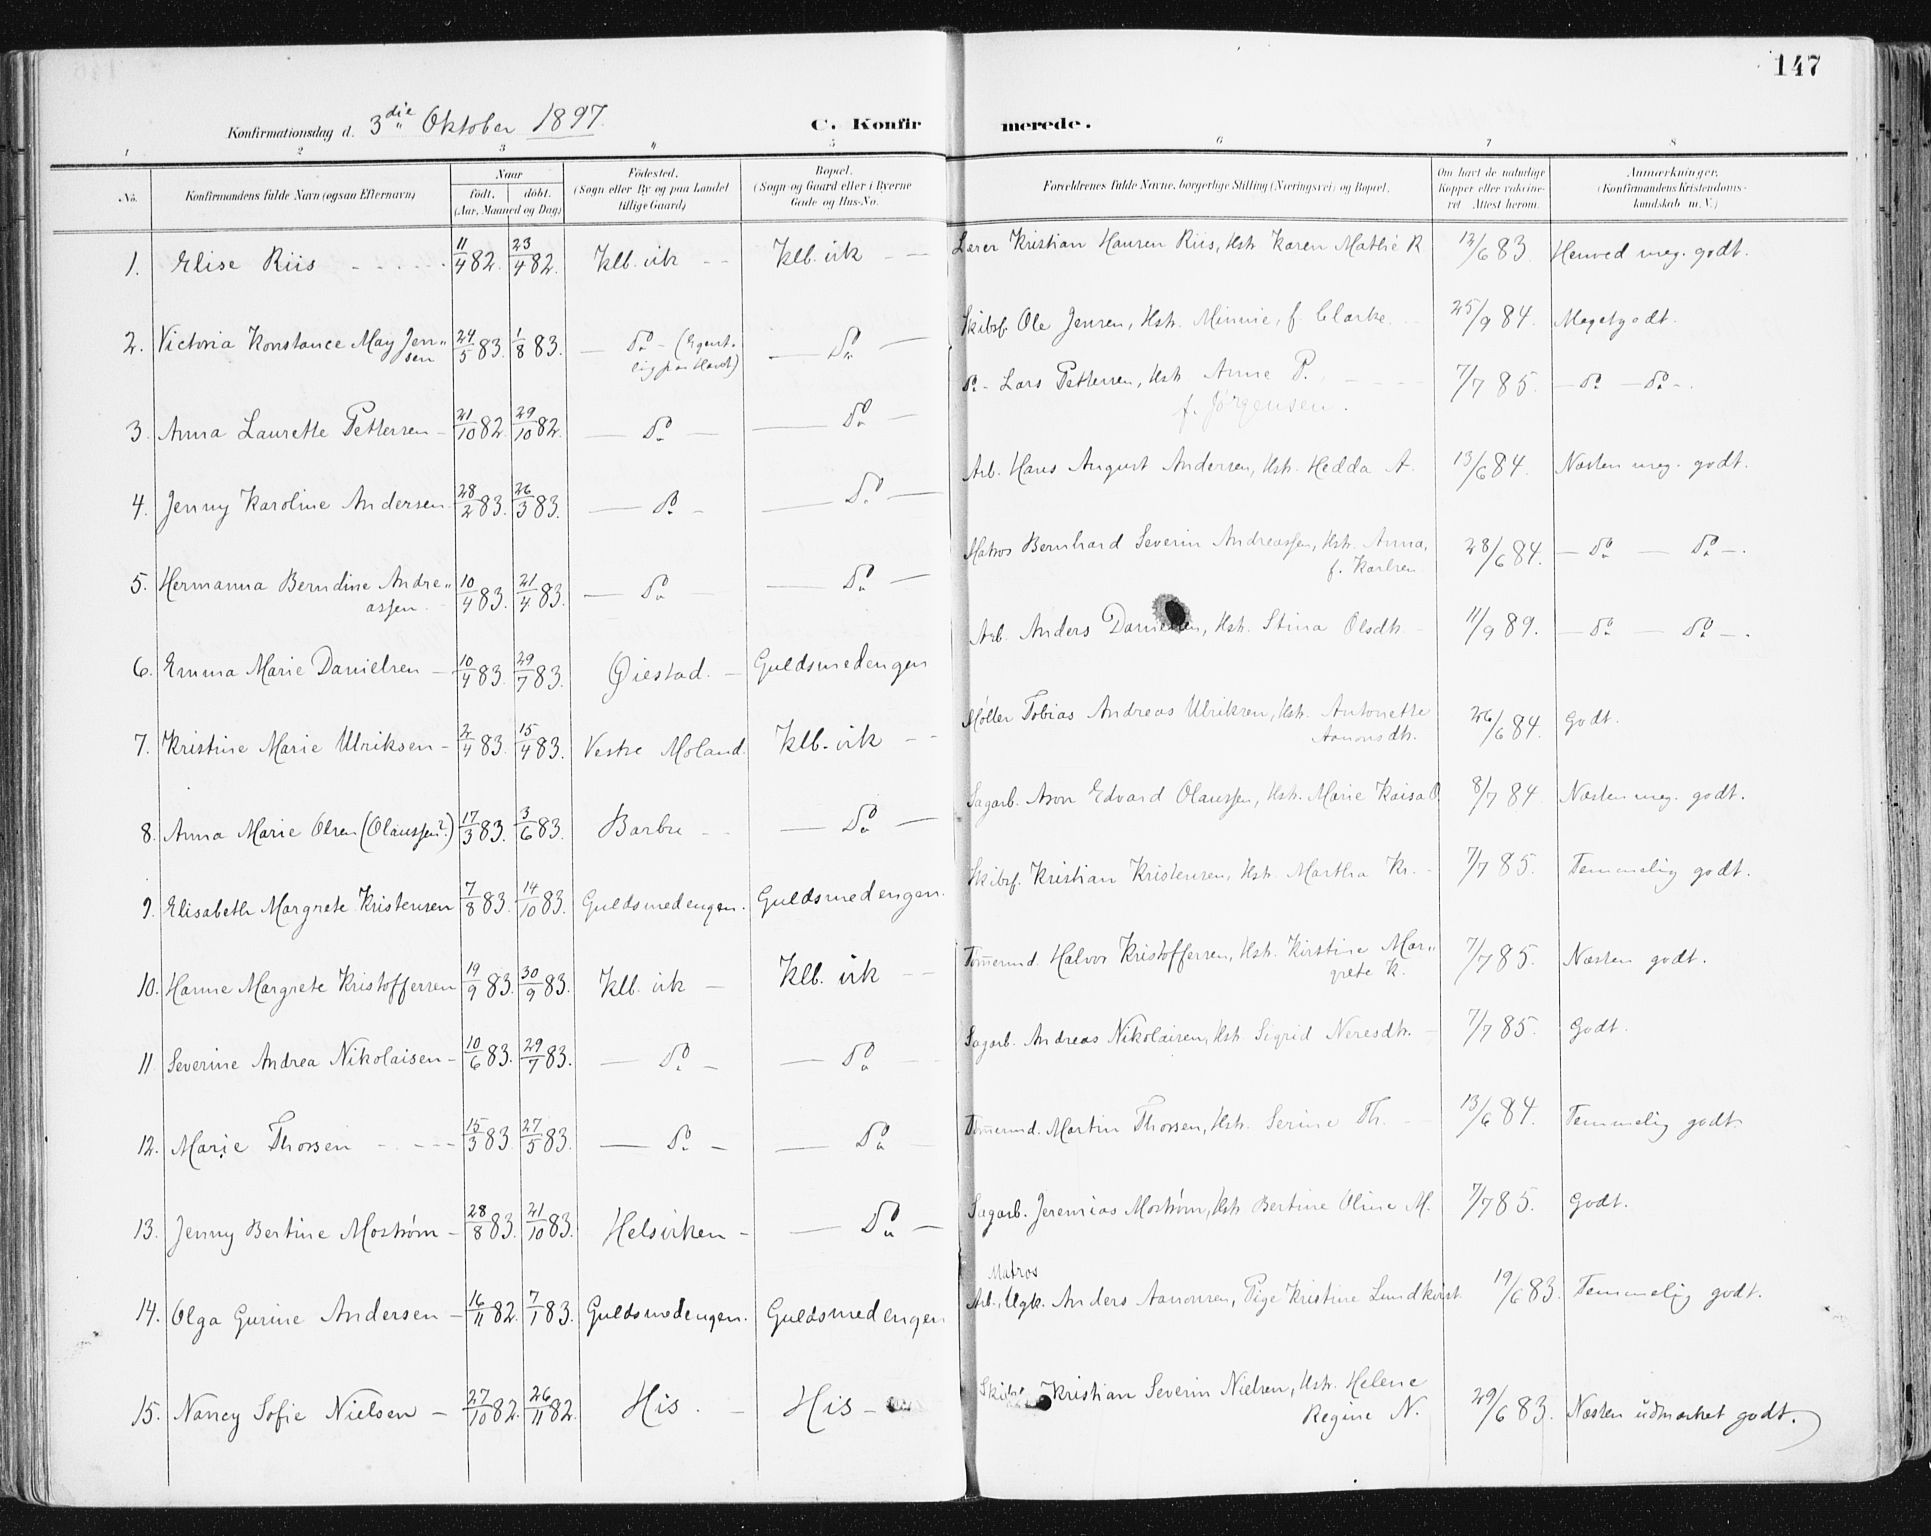 147
Konfirmationsdag d. 3die Oktober 1897.
C. Konfirmerede.
1 2 3 4 5 6 7 8
No. Konfirmandens fulde Navn (ogsaa Efternavn) Naar født. døbt. (Aar, Maaned og Dag) Fødested. (Sogn eller By og paa Landet tillige Gaard) Bopæl. (Sogn og Gaard eller i Byerne Gade og Hus-No. Forældrenes fulde Navne, borgerlige Stilling (Næringsvei) og Bopæl. Om havt de naturlige Kopper eller vaccineret Attest herom. Anmærkninger. (Konfirmandens Kristendomskundskab m. V.)
1. Elise Riis 11/4 82. 23/4 82. Klb. vik Klb. vik Lærer Kristian Hansen Riis, Hstr. Karen Mathie R 13/6 83. Henved meg. godt.
2. Victoria Konstance May Jensen 24/5 83. 1/8 83. — Do — (Egentlig paa Havet) — Do — Skibsf. Ole Jensen, Hstr. Minnie, f. Clarke. 25/9 84. Meget godt.
3. Anna Laurette Pettersen 21/10 82. 29/10 82. — Do — — Do — Do - Lars Pettersen, Hstr. Anne P. f. Jørgensen. 7/7 85. — Do — Do —.
4. Jenny Karoline Andersen 28/2 83. 26/3 83. — Do — — Do — Arb. Hans August Andersen, Hstr. Hedda A. 13/6 84. Næsten meg. godt.
5. Hermanna Berndine Andreassen 10/4 83. 21/4 83. — Do — — Do — Matros Bernhard Severin Andreassen, Hstr. Anna, f. Karlsen 28/6 84. — Do — Do —.
6. Emma Marie Danielsen 10/4 83. 29/7 83. Øiestad. Guldsmedengen Arb. Anders Danielsen, Hstr. Stina Olsdtr. 11/9 89. — Do — Do —.
7. Kristine Marie Ulriksen 2/4 83. 15/4 83. Vestre Moland. Klb. vik Møller Tobias Andreas Ulriksen, Hstr. Antonette Aanonsdtr. 26/6 84. Godt.
8. Anna Marie Olsen (Olaussen?) 17/3 83. 3/6 83. Barbu — Do — Sagarb. Aron Edvard Olaussen, Hstr. Marie Kaisa O. 8/7 84. Næsten meg. godt.
9. Elisabeth Margrete Kristensen 7/8 83. 14/10 83. Guldsmedengen. Guldsmedengen. Skibsf. Kristian Kristensen, Hstr. Martha Kr. 7/7 85. Temmelig godt.
10. Hanne Margrete Kristoffersen 19/9 83. 30/9 83. Klb. vik — Klb. vik Tømermd. Halvor Kristoffersen, Hstr. Kirstine Margrete K. 7/7 85. Næsten godt.
11. Severine Andrea Nikolaisen 10/6 83. 29/7 83. — Do — — Do Sagarb. Andreas Nikolaisen, Hstr. Sigrid Neresdtr. 7/7 85. Godt.
12. Marie Thorsen 15/3 83. 27/5 83. — Do — — Do Tømermd. Martin Thorsen, Hstr. Serine Th. 13/6 84. Temmelig godt
13. Jenny Bertine Mostrøm 28/8 83. 21/10 83. Helsviken — Do — Sagarb. Jeremias Mostrøm, Hstr. Bertine Oline M. 7/7 85. Godt.
Matros
14. Olga Gurine Andersen 16/11 82. 7/1 83. Guldsmedengen. Guldsmedengen Arb., Ugk. Anders Aanonsen, Pige Kristine Lundkvist 19/6 83. Temmelig godt.
15. Nancy Sofie Nielsen 27/10 82. 26/11 82. His. His Kristian Severin Nielsen, Hstr. Helene Regine N. 29/6 83. Næsten udmærket godt.